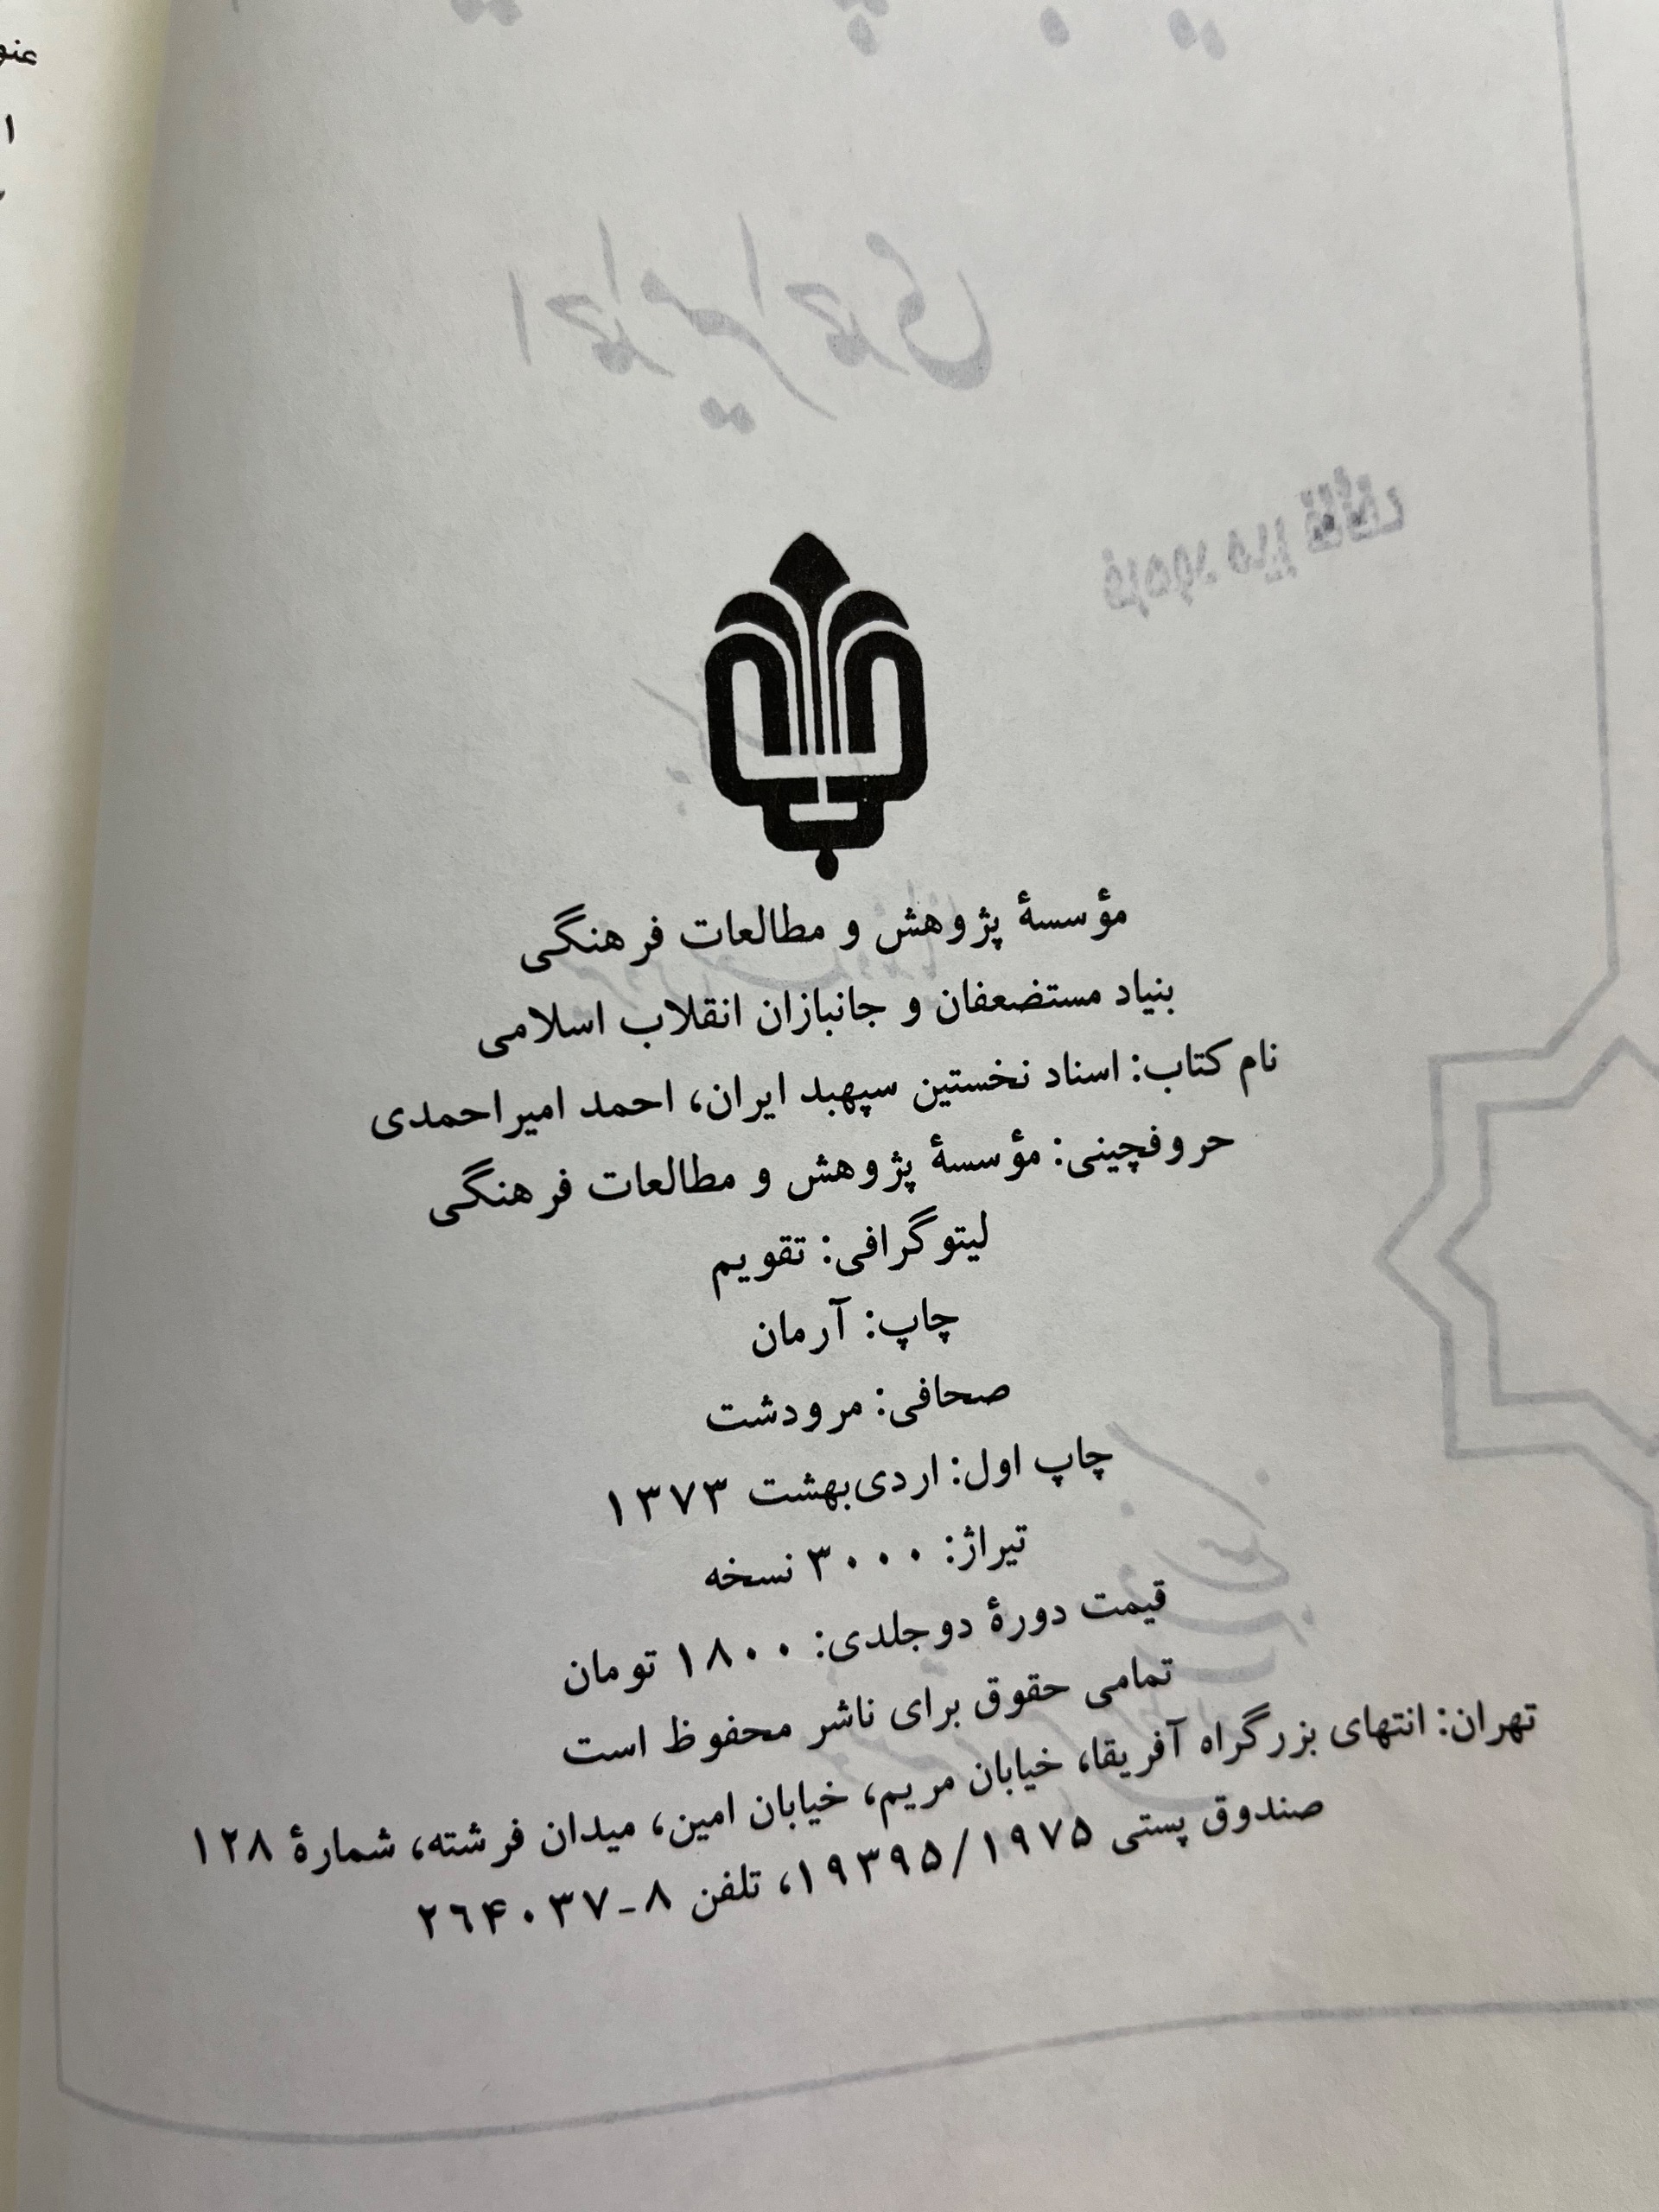 مؤسسهٔ پژوهش و مطالعات فرهنگی
بنیاد مستضعفان و جانبازان انقلاب اسلامی
نام کتاب: اسناد نخستین سپهبد ایران، احمد امیراحمدی
حروفچینی: مؤسسهٔ پژوهش و مطالعات فرهنگی
لیتوگرافی: تقویم
چاپ: آرمان
صحافی: مرودشت
چاپ اول: اردی‌بهشت ۱۳۷۳
تیراژ: ۳۰۰۰ نسخه
قیمت دورهٔ دوجلدی: ۱۸۰۰ تومان
تمامی حقوق برای ناشر محفوظ است
تهران: انتهای بزرگراه آفریقا، خیابان مریم، خیابان امین، میدان فرشته، شمارهٔ ۱۲۸
صندوق پستی ۱۹۳۹۵/۱۹۷۵، تلفن ۸-۲۶۴۰۳۷